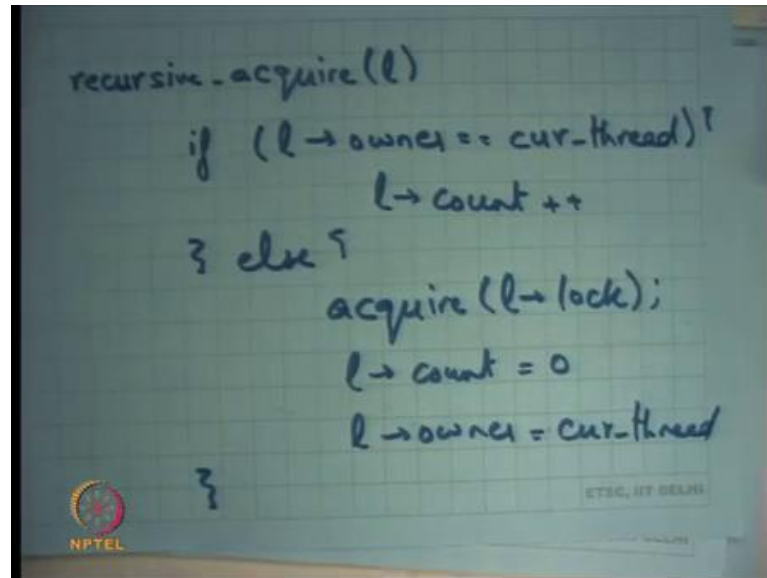 recursive-acquire(l)
if (l→owner == cur-thread){
l→count ++
} else {
acquire(l→lock);
l→count = 0
l→owner = cur-thread
}
ETSC, IIT DELHI
NPTEL